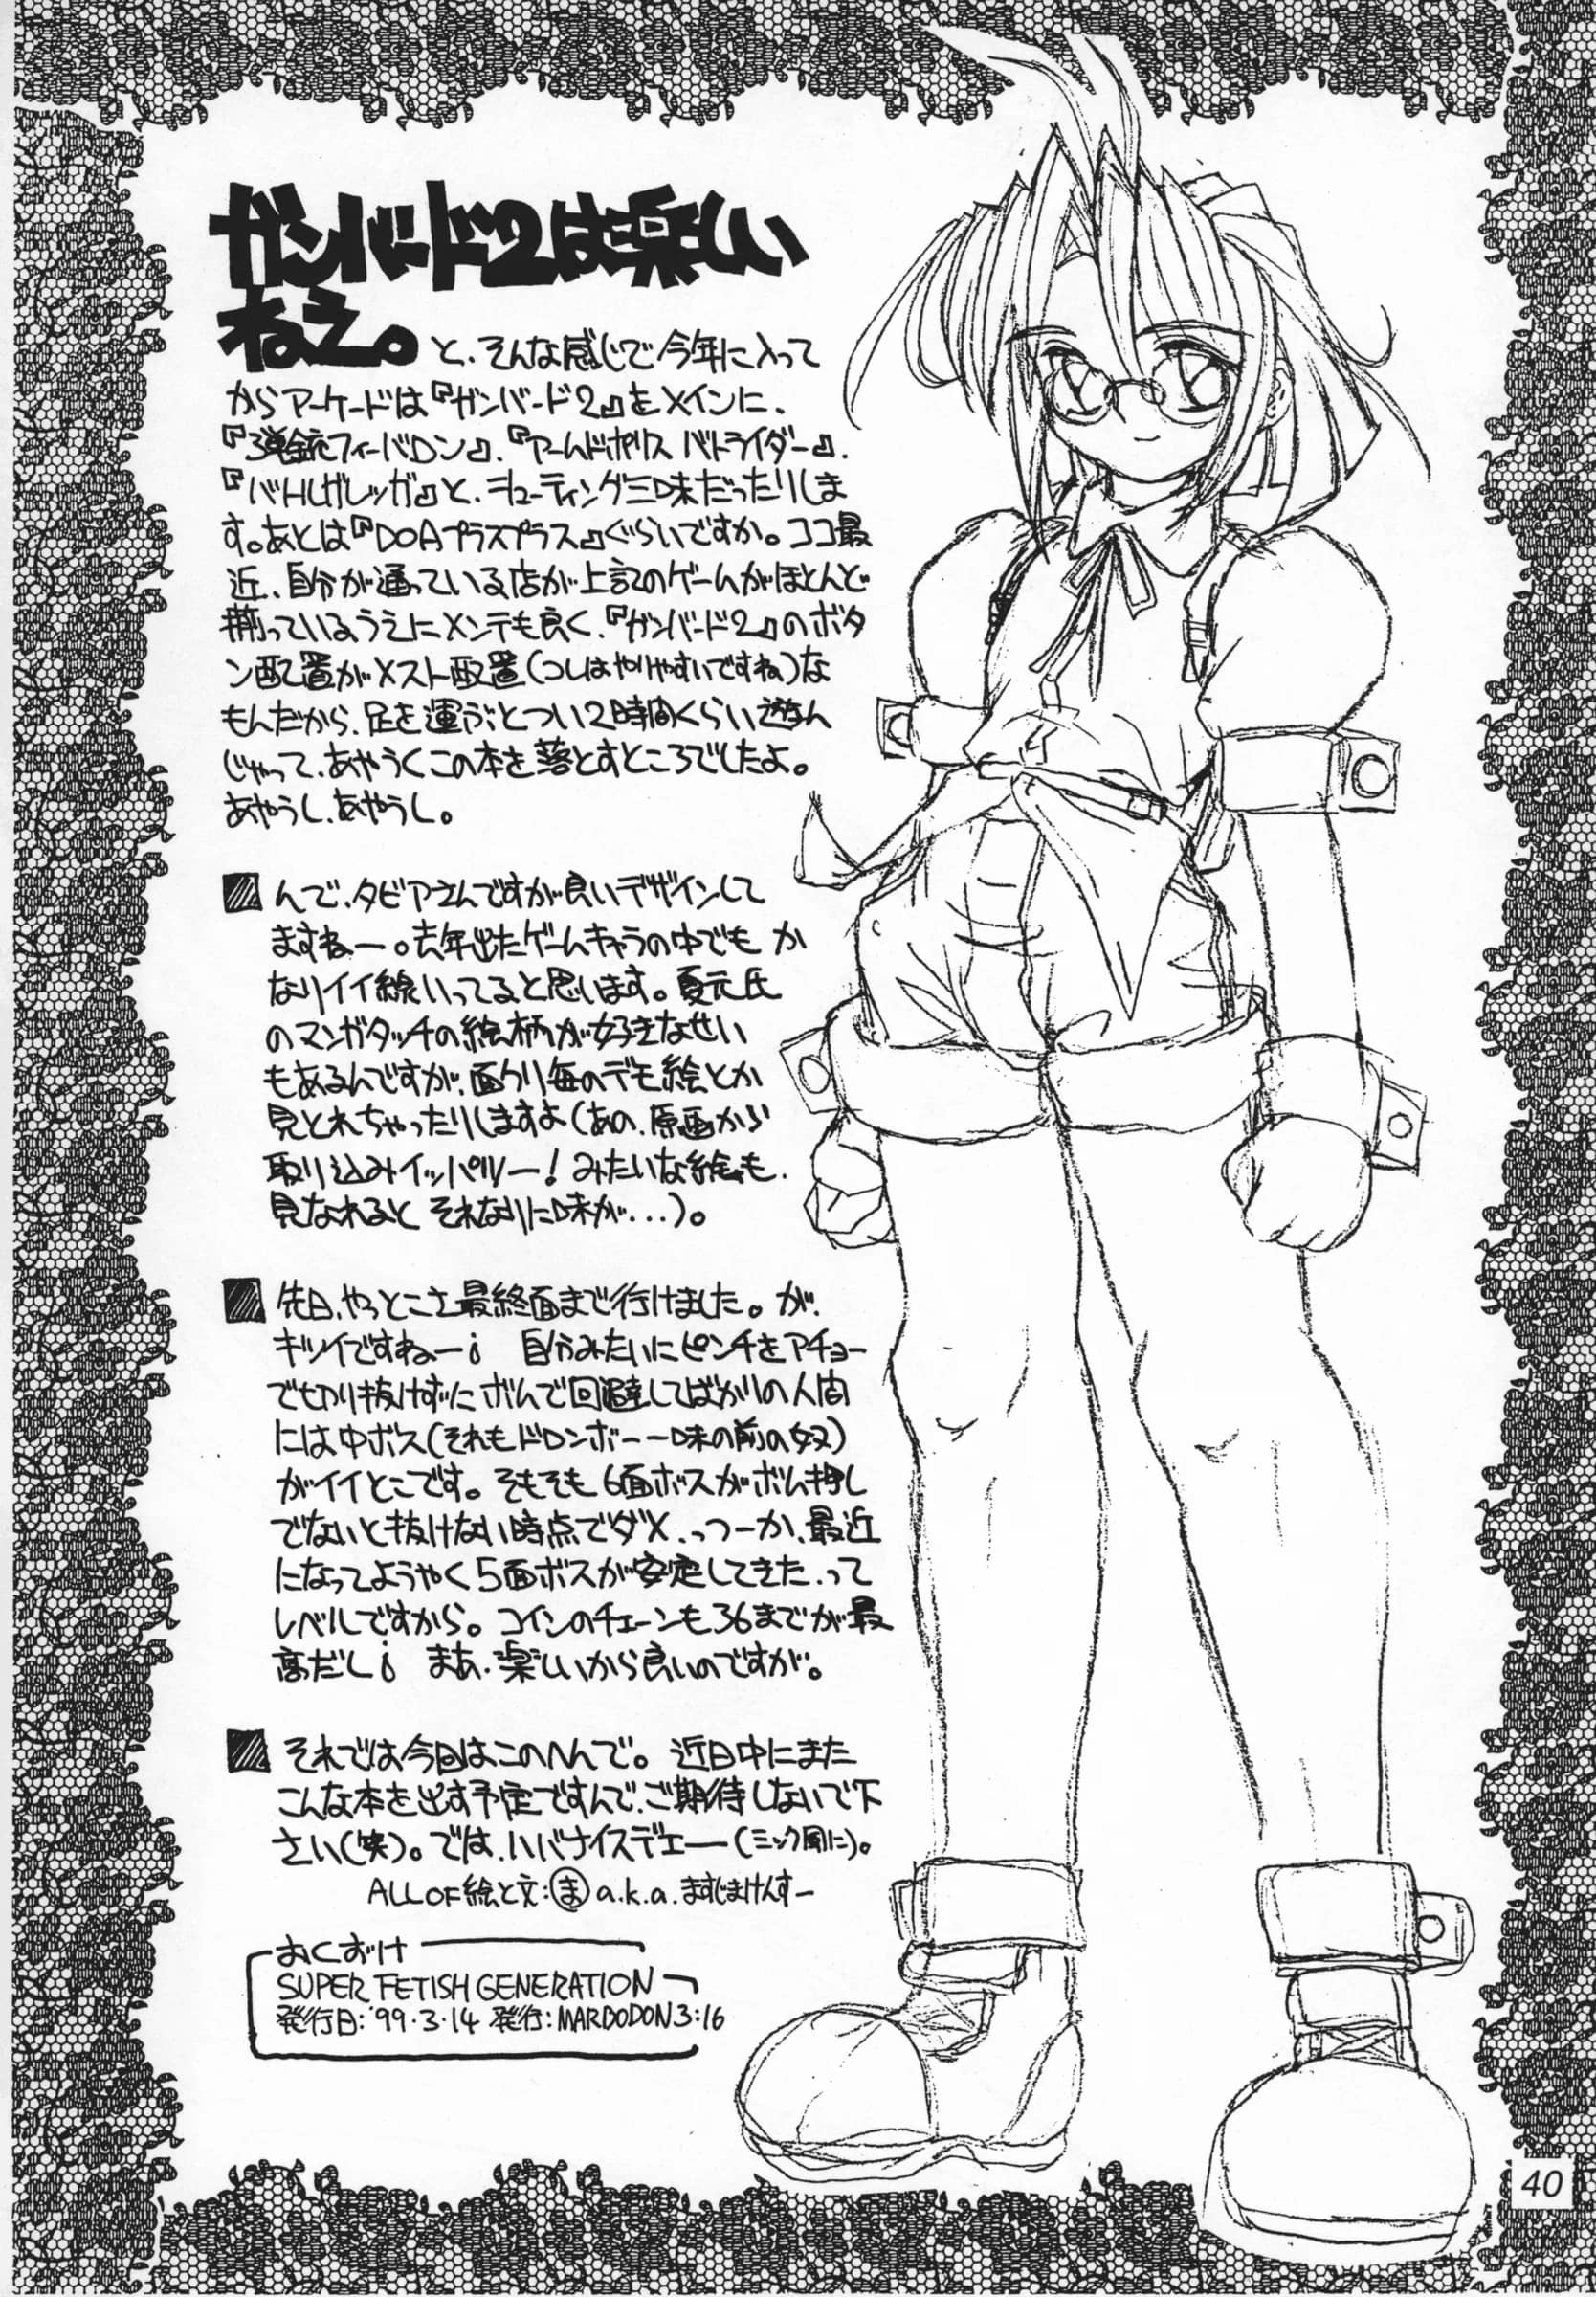 ガンバード2は楽しい
ねえ。 と、そんな感じで今年に入って
からアーケードは『ガンバード2』をメインに、
『弾銃フィーバロン』、『アームドポリス バトライダー』、
『バトルガレッガ』と、シューティング三昧だったりしま
す。あとは『DOAプラスプラス』ぐらいですか。ココ最
近、自分が通っている店が上記のゲームがほとんど
揃っているうえにメンテも良く、『ガンバード2』のボタ
ン配置がメスト配置(コレはやりやすいですね)な
もんだから、足を運ぶとつい2時間くらい遊ん
じゃって、あやうくこの本を落とすところでしたよ。
あやうし、あやうし。
んで、タビアさんですが良いデザインして
ますねー。去年出たゲームキャラの中でも か
なりイイ線いってると思います。夏元氏
のマンガタッチの絵柄が好きなせい
もあるんですが、面クリ毎のデモ絵とか
見とれちゃったりしますよ(あの、原画から
取り込みイッパツー!みたいな絵も、
見なれると それなりに味が...)。
先日、やっとこさ最終面まで行けました。が、
キツイですねー¡ 自分みたいにピンチをアチョー
で切り抜けずにボムで回避してばかりの人間
には中ボス(それもドロンボー一味の前の奴)
がイイとこです。そもそも6面ボスがボム押し
でないと抜けない時点でダメ、っつーか、最近
になってようやく5面ボスが安定してきた、って
レベルですから。コインのチェーンも36までが最
高だし¡ まあ、楽しいから良いのですが。
それでは今回はこのへんで。近日中にまた
こんな本を出す予定ですんで、ご期待しないで下
さい(笑)。では、ハバナイスデェー(ミンク風に)。
ALL OF 絵と文:ま a.k.a. ますじまけんすー
おくづけ
SUPER FETISH GENERATION
発行日:'99.3.14 発行:MARDODON 3:16
40